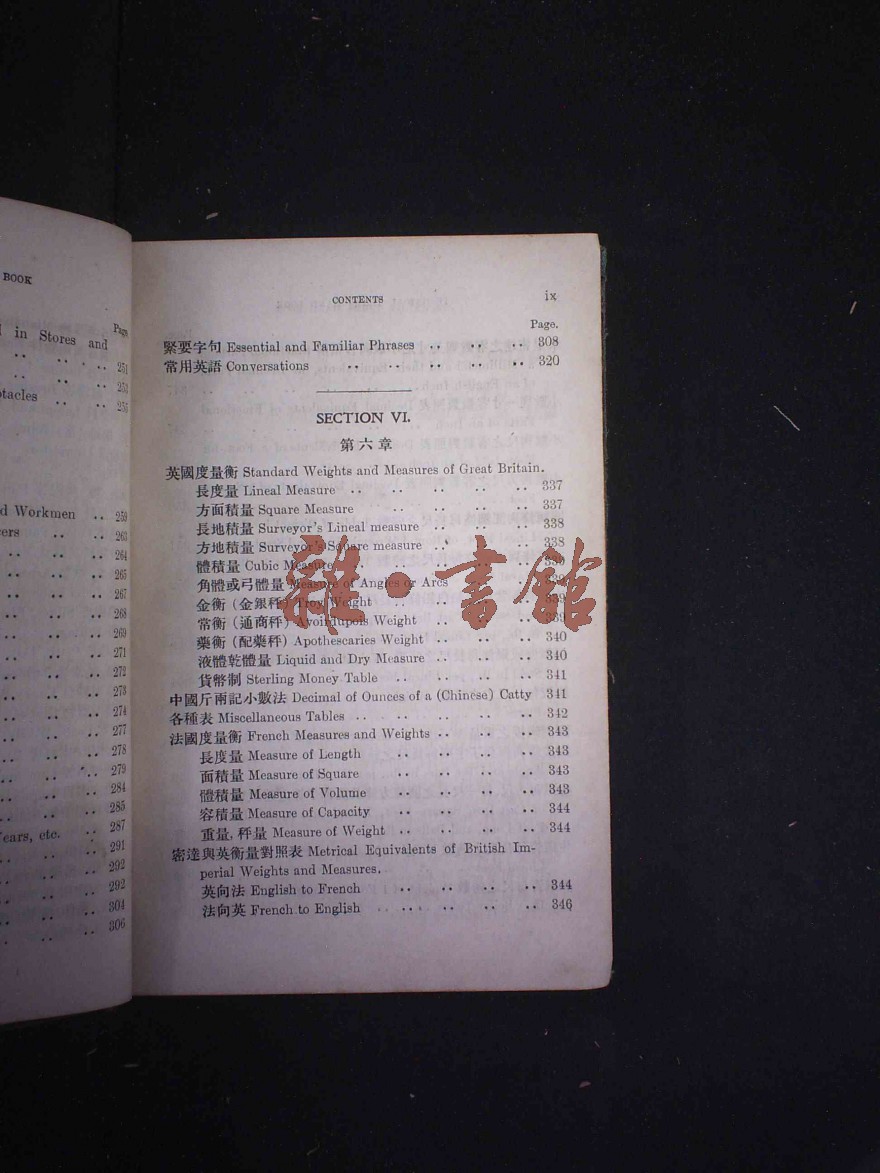 BOOK
Page
in Stores and
251
ptacles
Workmen .. 259
263
264
265
267
268
269
271
272
273
274
277
278
279
284
285
Years, etc. .. 287
291
292
292
304
306
CONTENTS ix
Page.
緊要字句 Essential and Familiar Phrases .. .. .. 308
常用英語 Conversations .. .. .. .. .. 320
SECTION VI.
第六章
英國度量衡 Standard Weights and Measures of Great Britain.
長度量 Lineal Measure .. .. .. .. .. 337
方面積量 Square Measure .. .. .. .. 337
長地積量 Surveyor's Lineal measure .. .. .. 338
方地積量 Surveyor's Square measure .. .. .. 338
體積量 Cubic Measure
角體或弓體量 Measure of Angles or Arcs
金衡 (金銀秤) Troy Weight .. .. .. .. 339
常衡 (通商秤) Avoirdupois Weight .. .. .. 339
藥衡 (配藥秤) Apothecaries Weight .. .. .. 340
液體乾體量 Liquid and Dry Measure .. .. .. 340
貨幣制 Sterling Money Table .. .. .. .. 341
中國斤兩記小數法 Decimal of Ounces of a (Chinese) Catty 341
各種表 Miscellaneous Tables .. .. .. .. .. 342
法國度量衡 French Measures and Weights .. .. .. 343
長度量 Measure of Length .. .. .. .. 343
面積量 Measure of Square .. .. .. .. 343
體積量 Measure of Volume .. .. .. .. 343
容積量 Measure of Capacity .. .. .. .. 344
重量, 秤量 Measure of Weight .. .. .. .. 344
密達與英衡量對照表 Metrical Equivalents of British Im-
perial Weights and Measures.
英向法 English to French .. .. .. .. 344
法向英 French to English .. .. .. .. 346
雜·書館